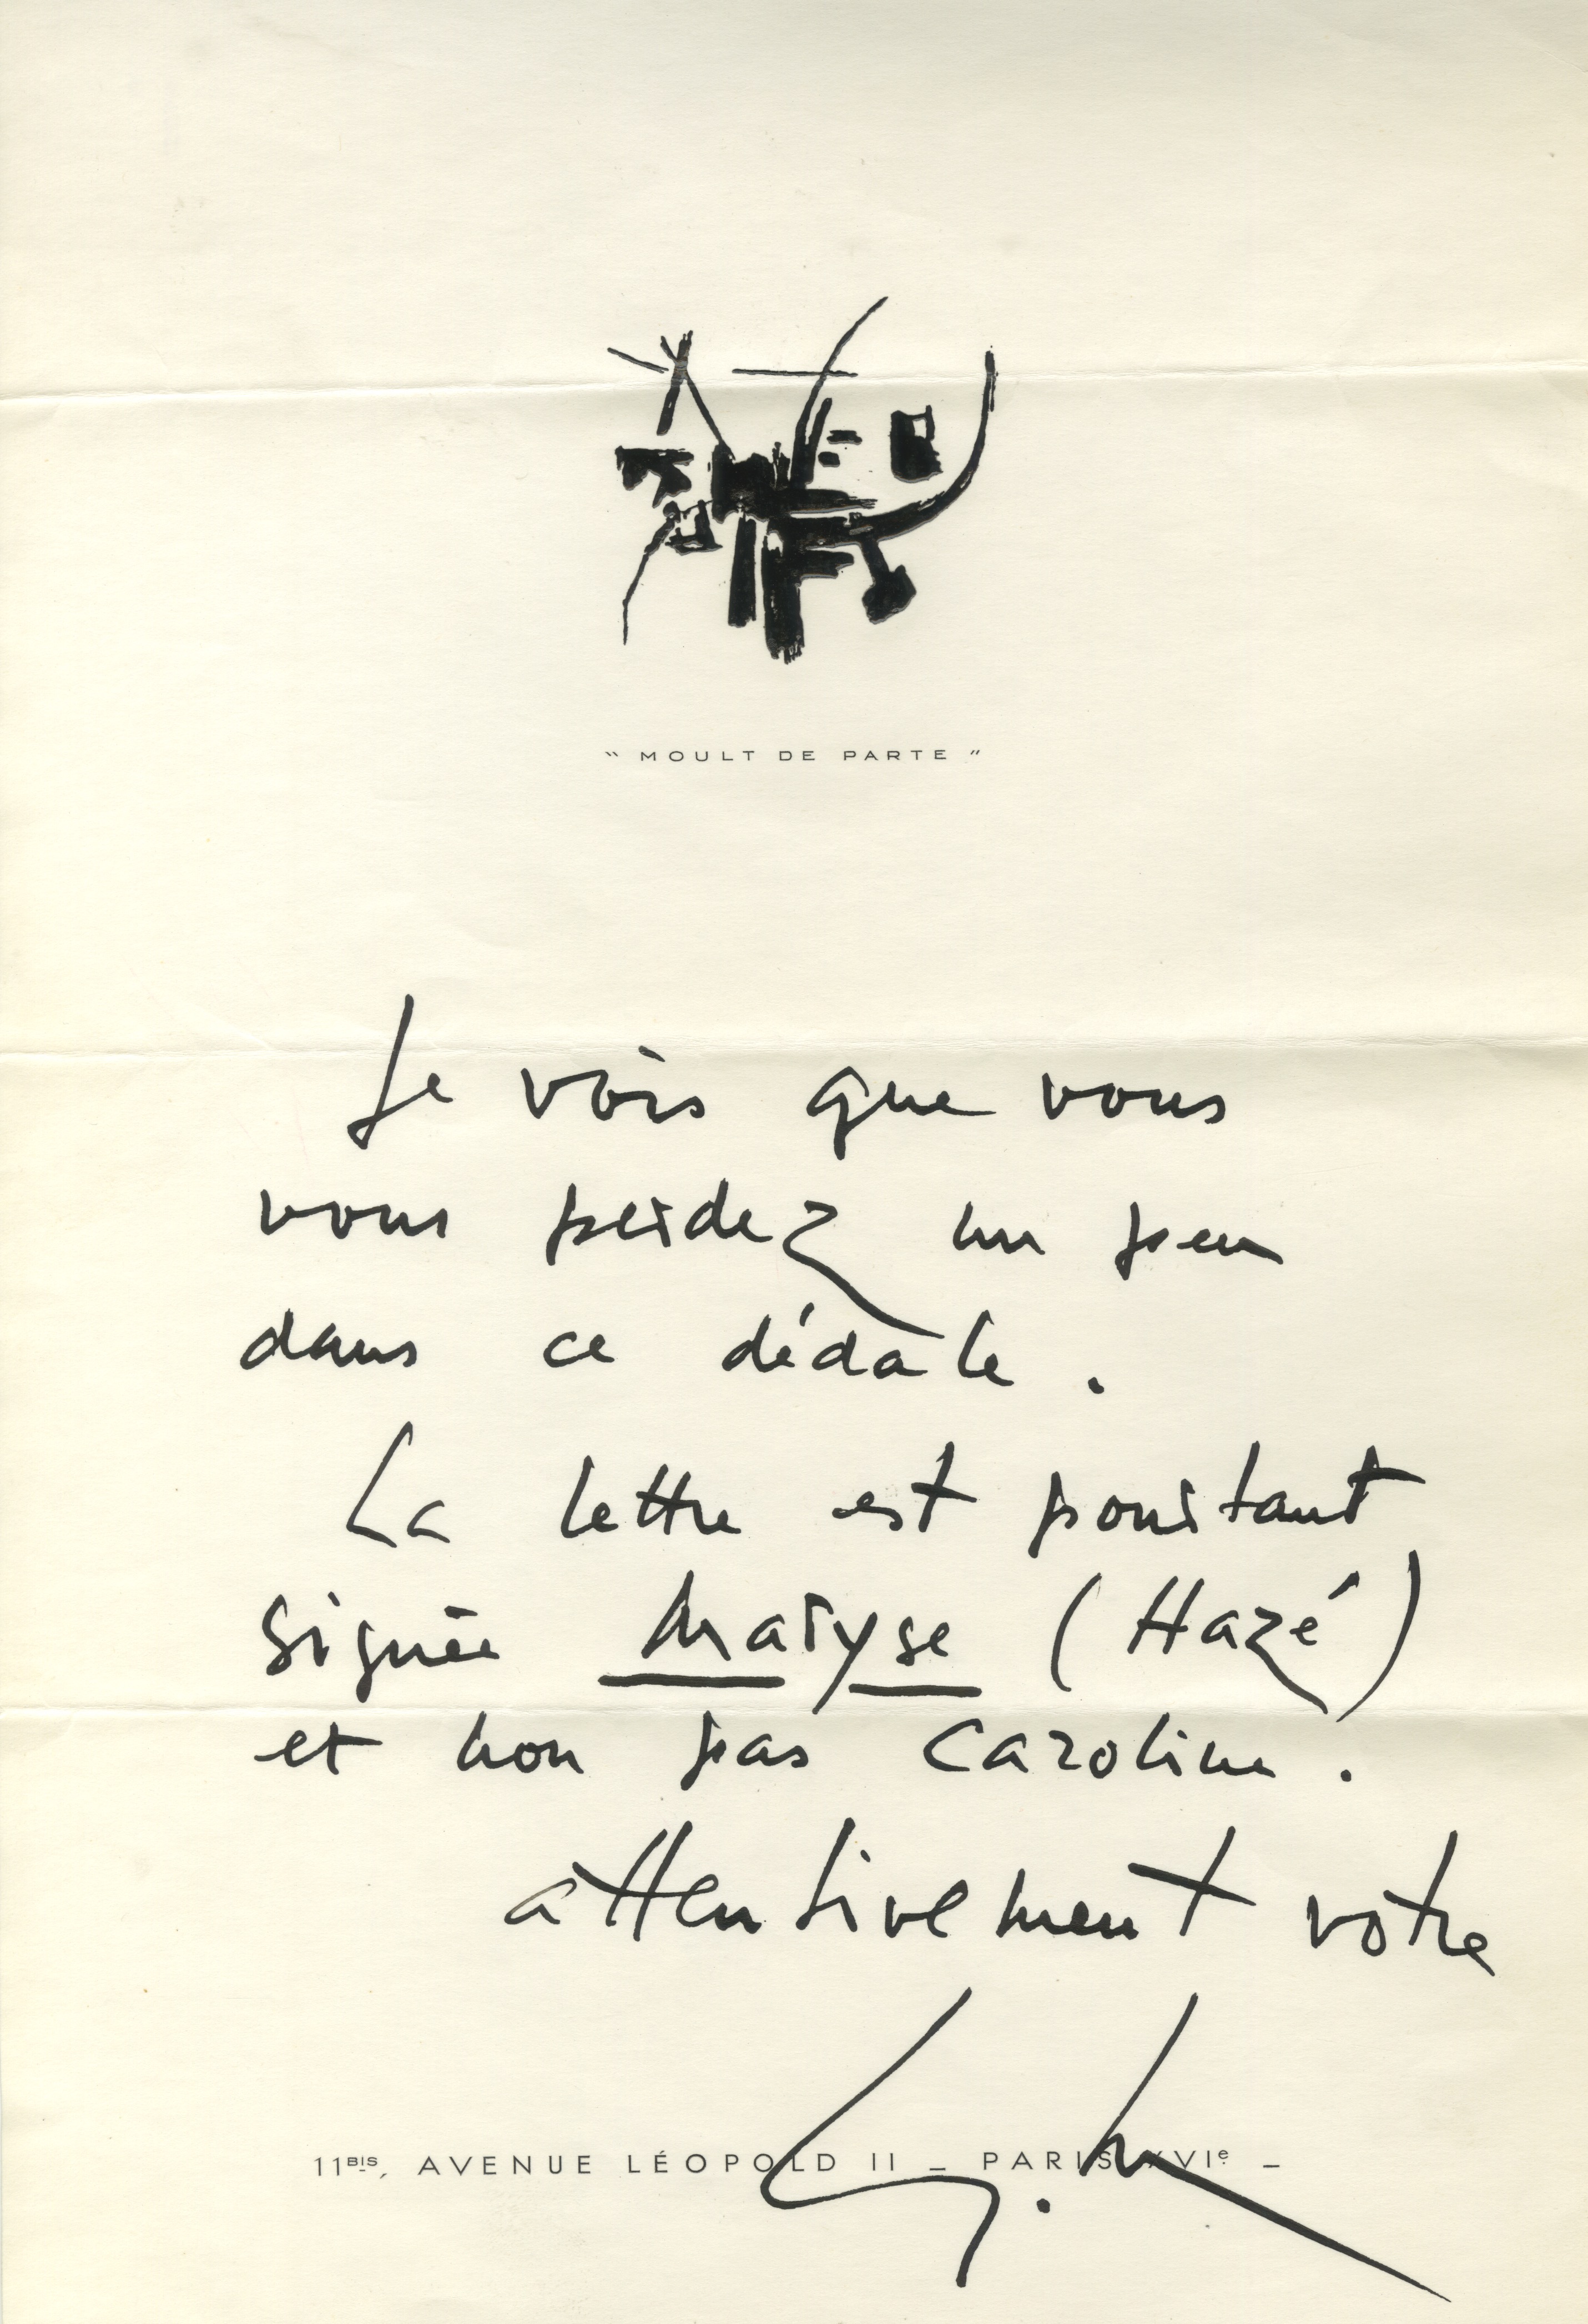 " MOULT DE PARTE "
Je vois que vous
vous perdez un peu
dans ce dédale .
La lettre est pourtant
signée Maryse (Hazé)
et non pas Caroline .
attentivement votre
G. M
11BIS, AVENUE LÉOPOLD II _ PARIS XVIe _